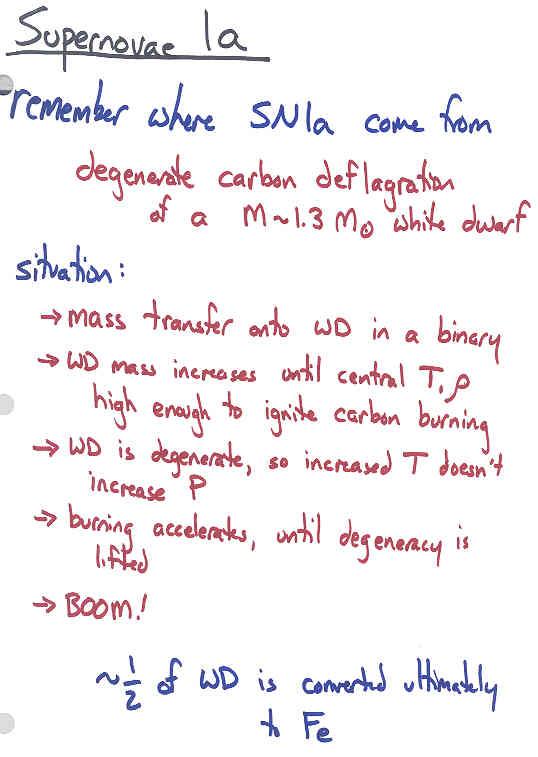 Supernovae 1a
remember where SN1a come from
degenerate carbon deflagration
of a M~1.3 M⊙ white dwarf
situation:
→ mass transfer onto WD in a binary
→ WD mass increases until central T, ρ
high enough to ignite carbon burning
→ WD is degenerate, so increased T doesn't
increase P
→ burning accelerates, until degeneracy is
lifted
→ BOOM!
~1/2 of WD is converted ultimately
to Fe